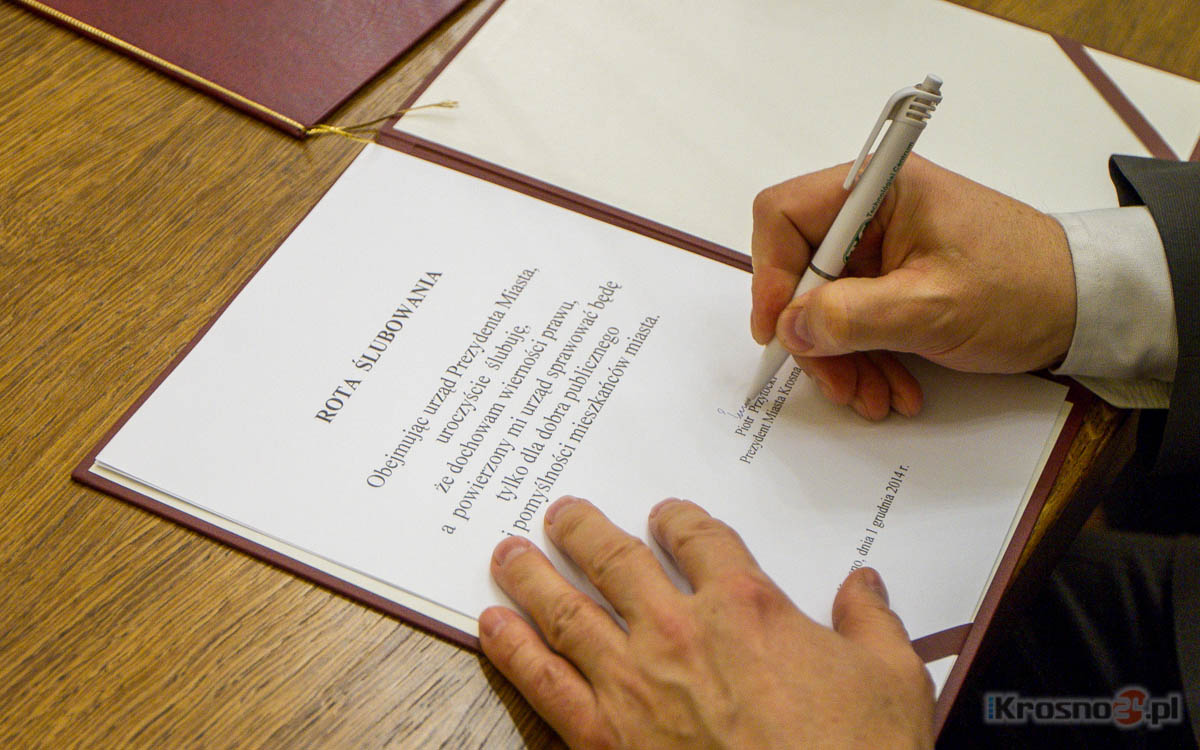 ROTA ŚLUBOWANIA
Obejmując urząd Prezydenta Miasta,
uroczyście ślubuję,
że dochowam wierności prawu,
a powierzony mi urząd sprawować będę
tylko dla dobra publicznego
i pomyślności mieszkańców miasta.
Piotr Przytocki
Prezydent Miasta Krosna
dnia 1 grudnia 2014 r.
Technologies
Krosno24.pl